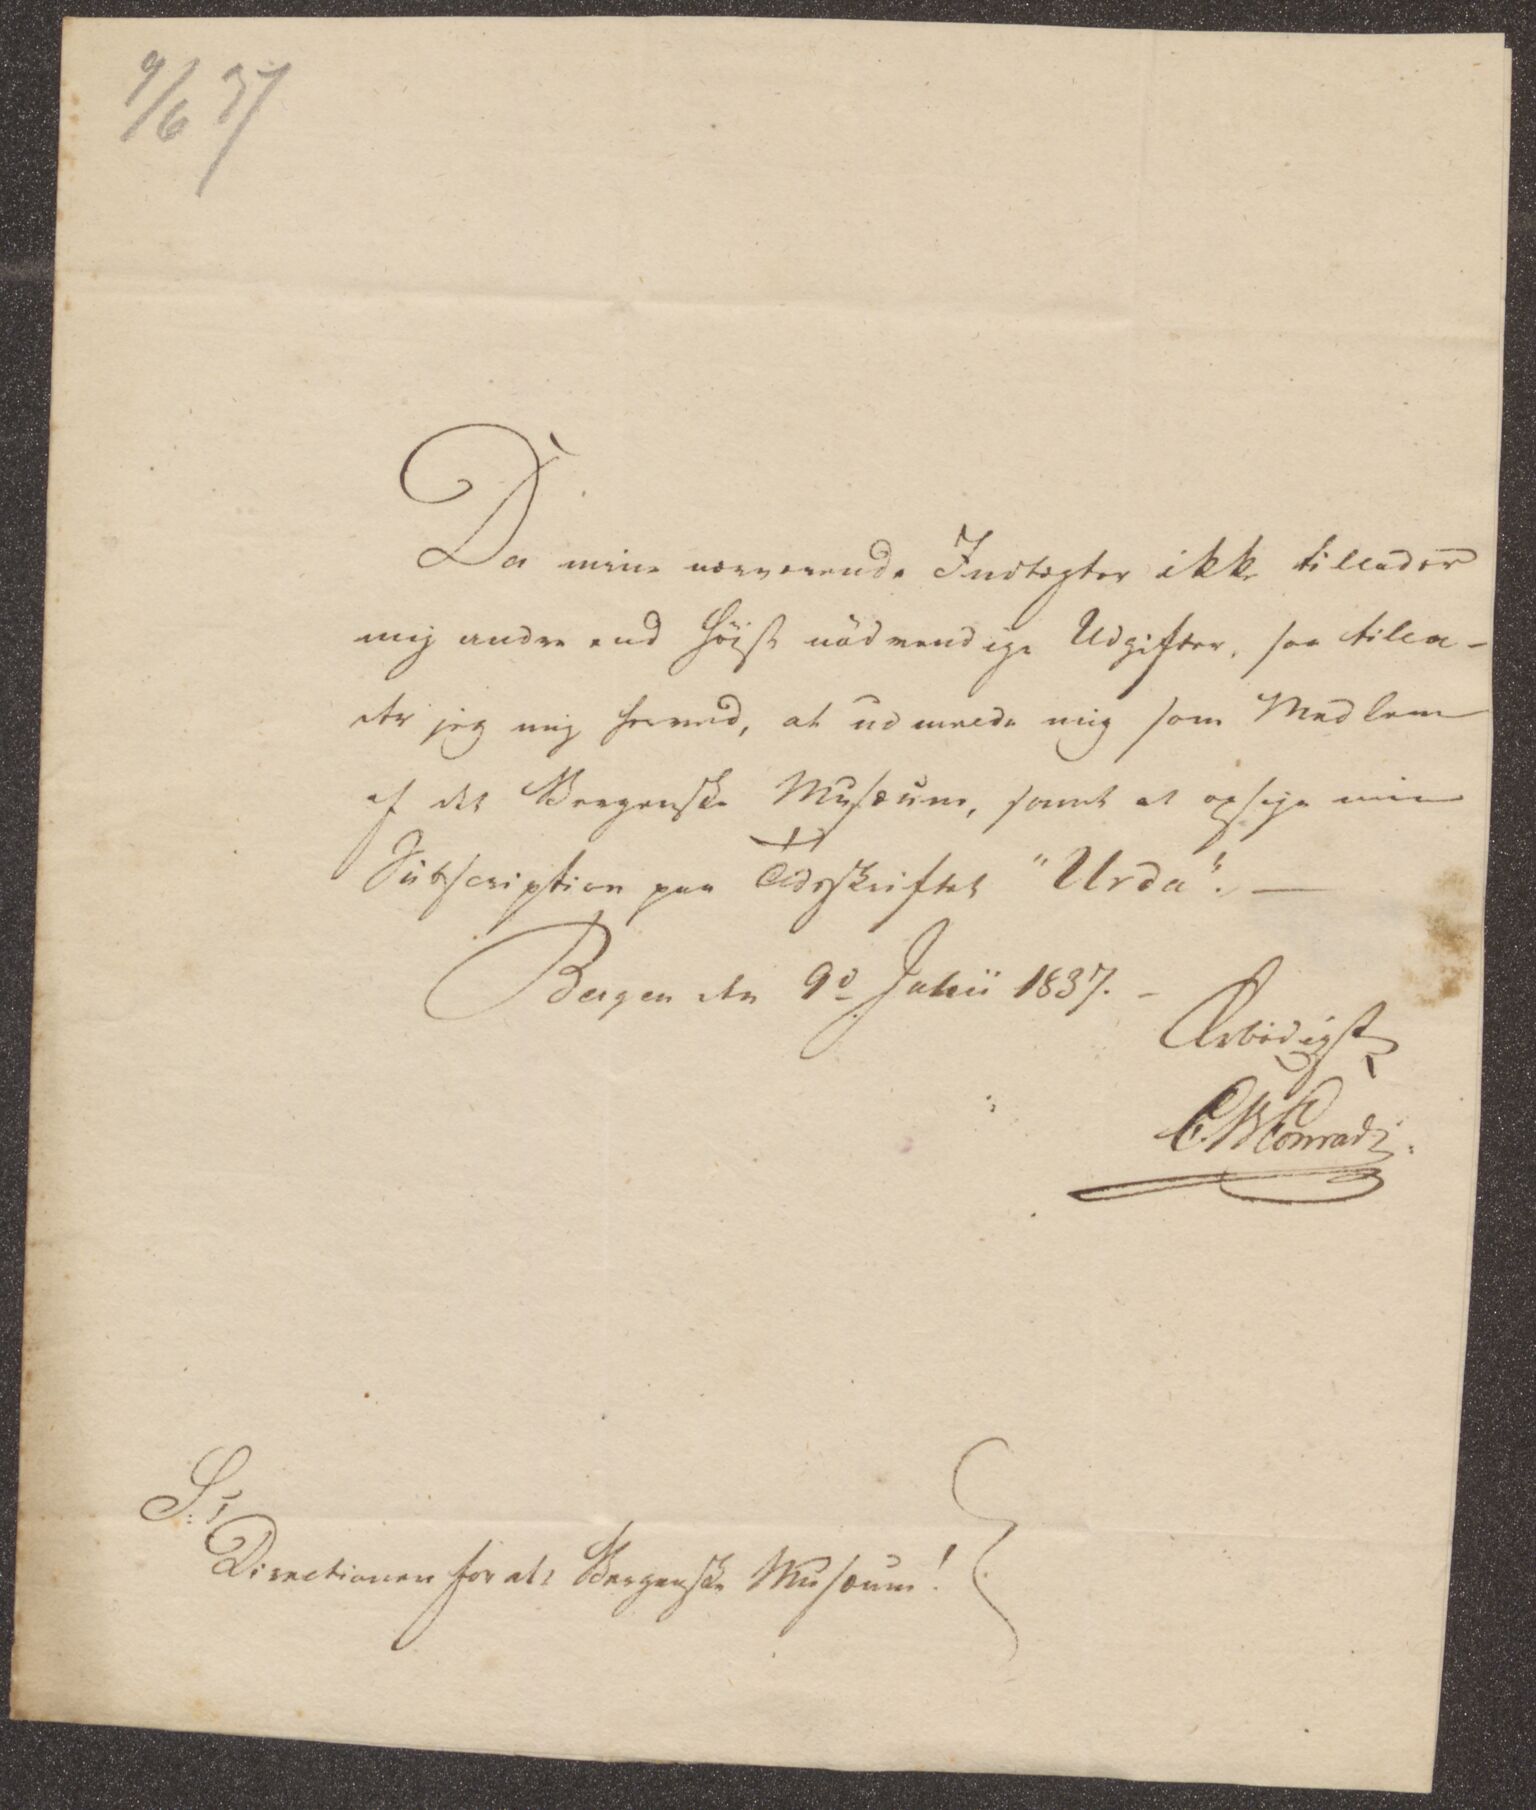 9/6 37
Da mine nærværende Indtægter ikke tillader
mig andre end høist nödvendige Udgifter, saa tilla-
der jeg mig herved, at udmelde mig som Medlem
af det Bergenske Musæum, samt at opsige min
Subscription paa Tidsskriftet "Urda". —
Bergen den 9d Junii 1837. -
Ærbödigst
C. W. Conradi.
S: T.
Directionen for det Bergenske Musæum!